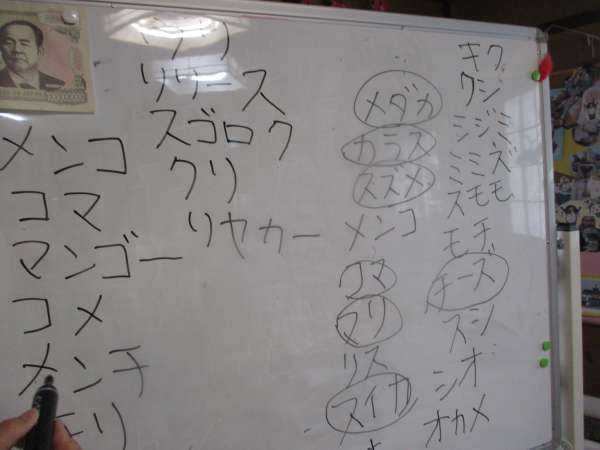 メンコ
コマ
マンゴー
コメ
メンチ
リリース
スゴロク
クリ
リヤカー
メダカ
カラス
スズメ
メンコ
コマ
マリ
リス
スイカ
キク
クジ
シジミ
ミミズ
スモモ
モチ
チーズ
スシ
シオ
オカメ